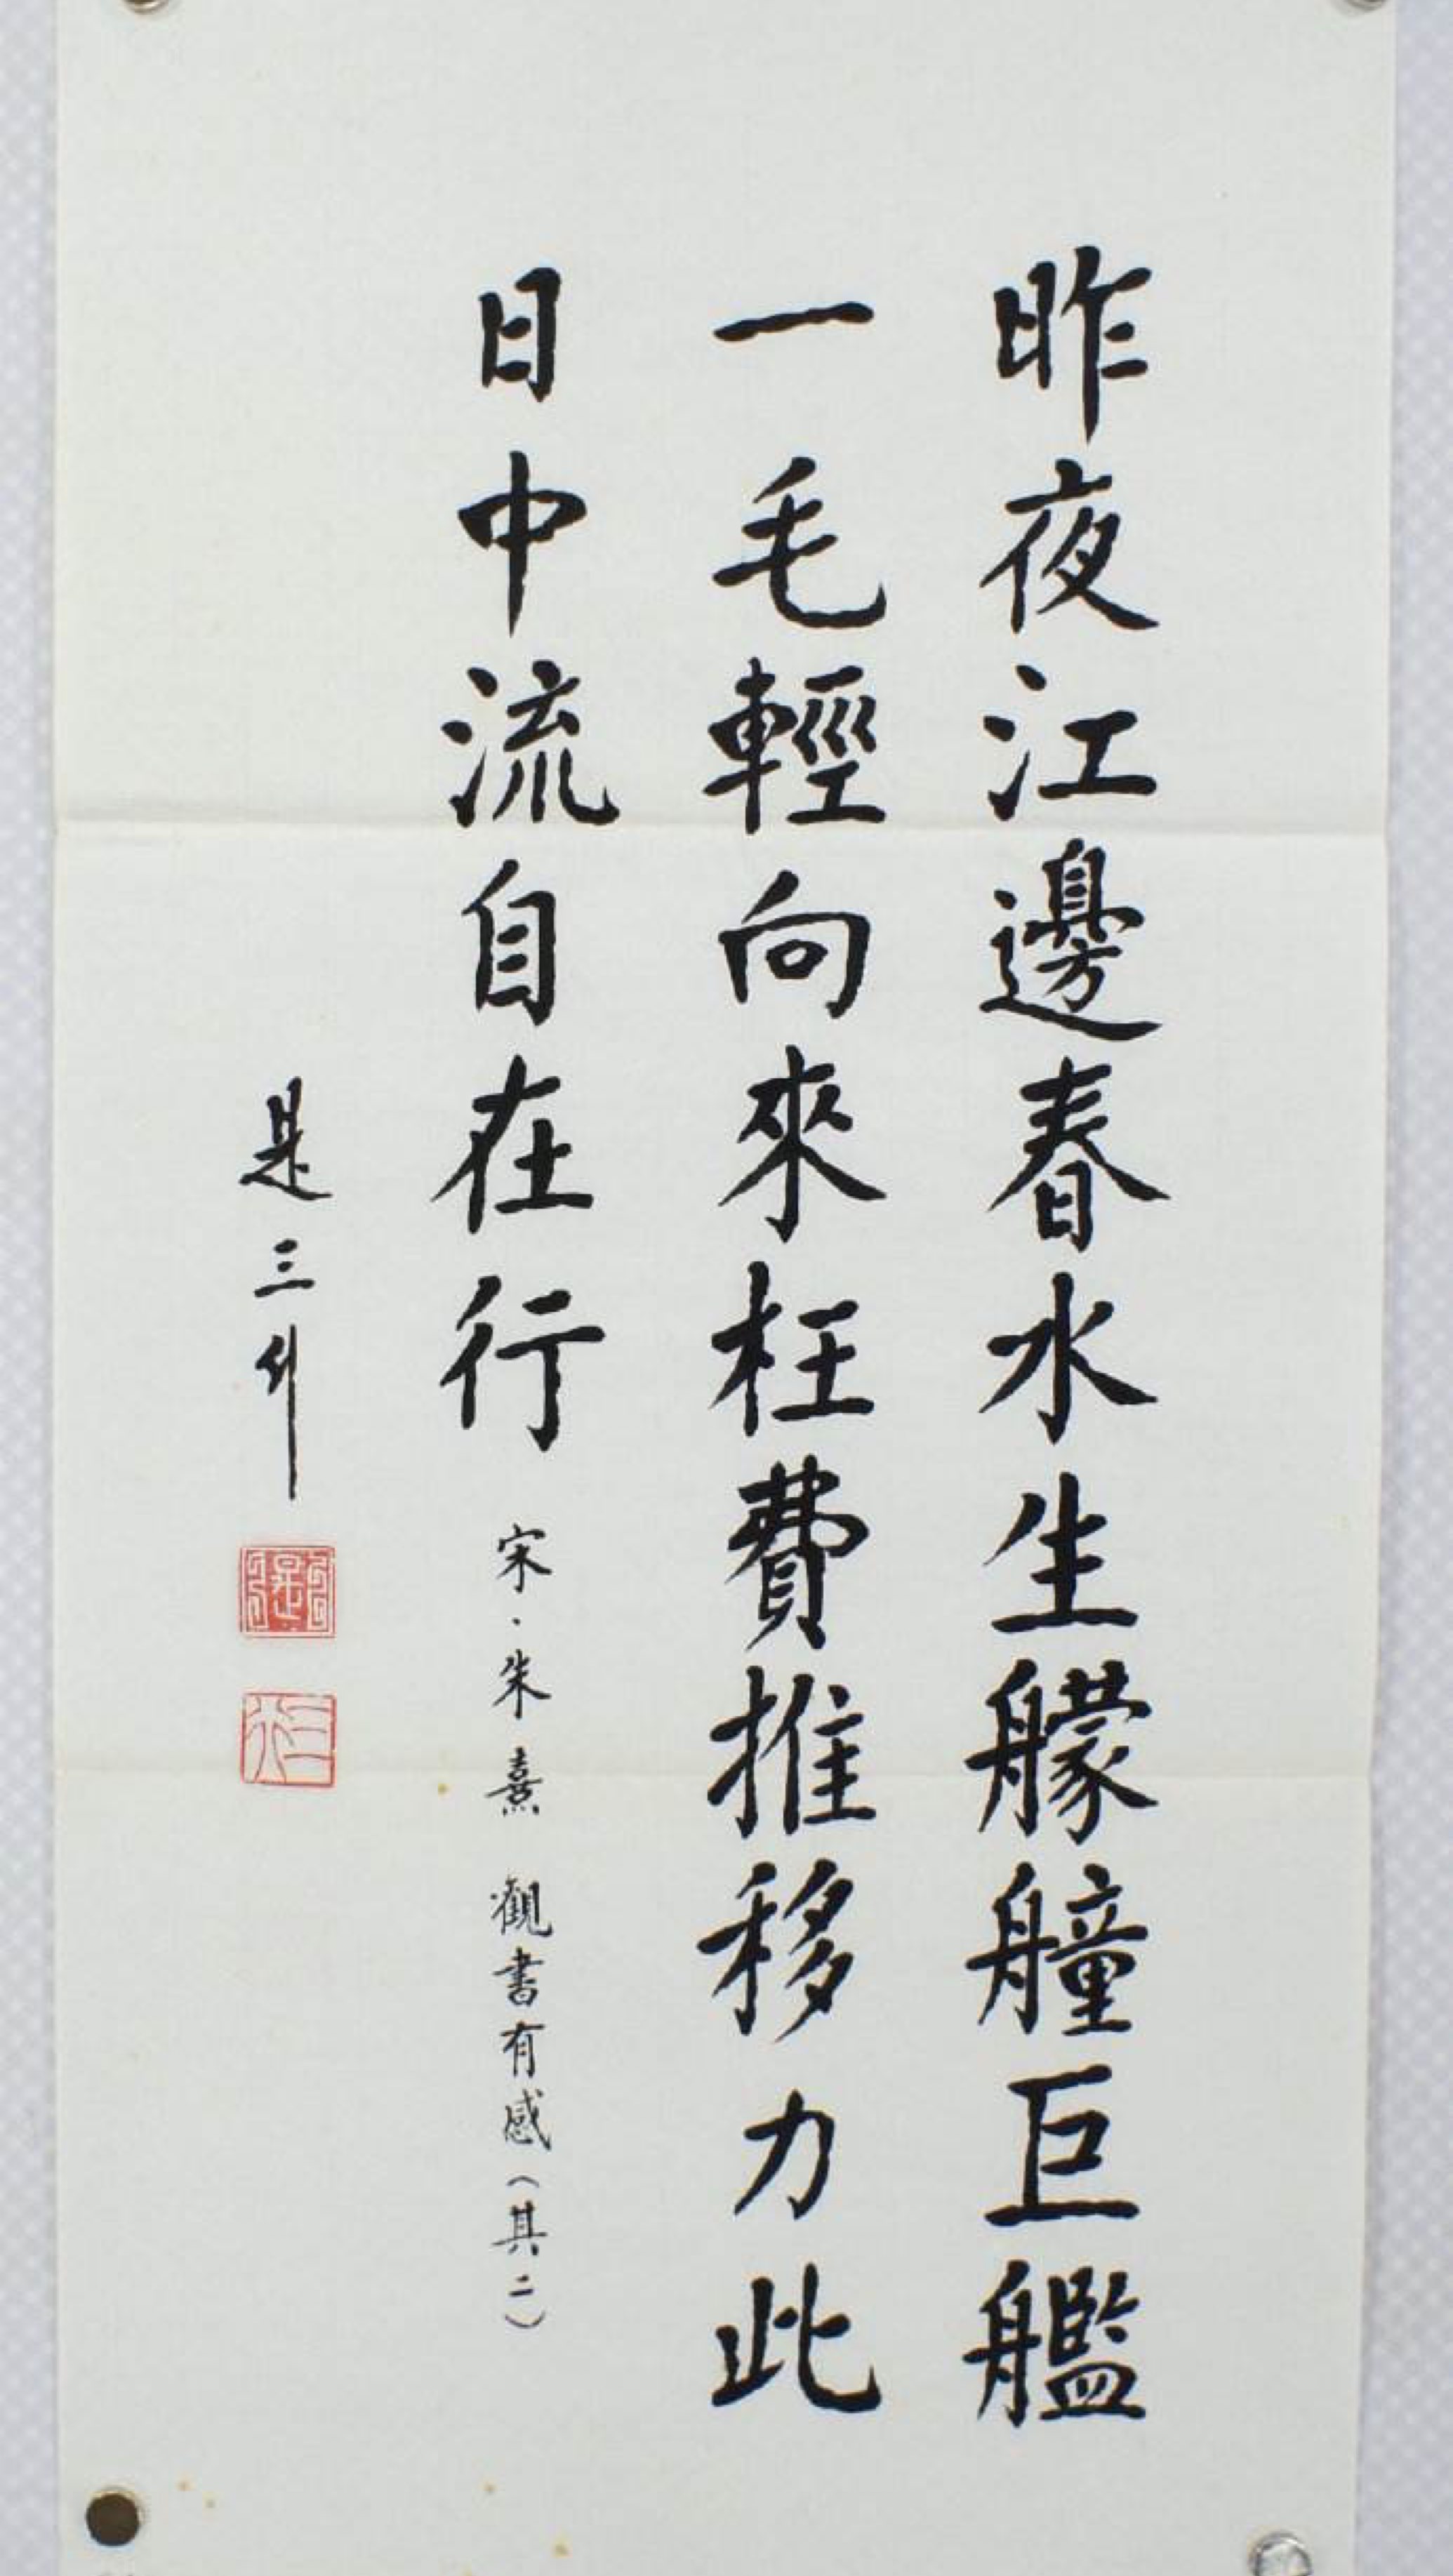 昨夜江邊春水生艨艟巨艦
一毛輕向來枉費推移力此
日中流自在行
宋·朱熹 觀書有感(其二)
是三